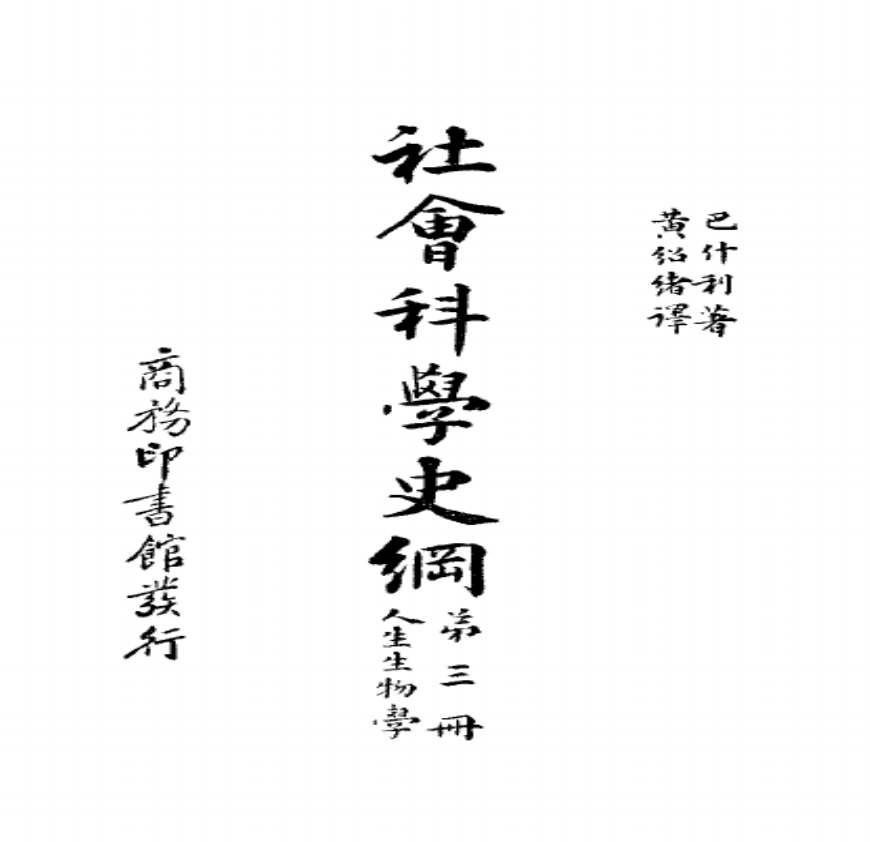 巴什利著
黄紹緒譯
社會科學史綱
第三冊
人生生物學
商務印書館發行